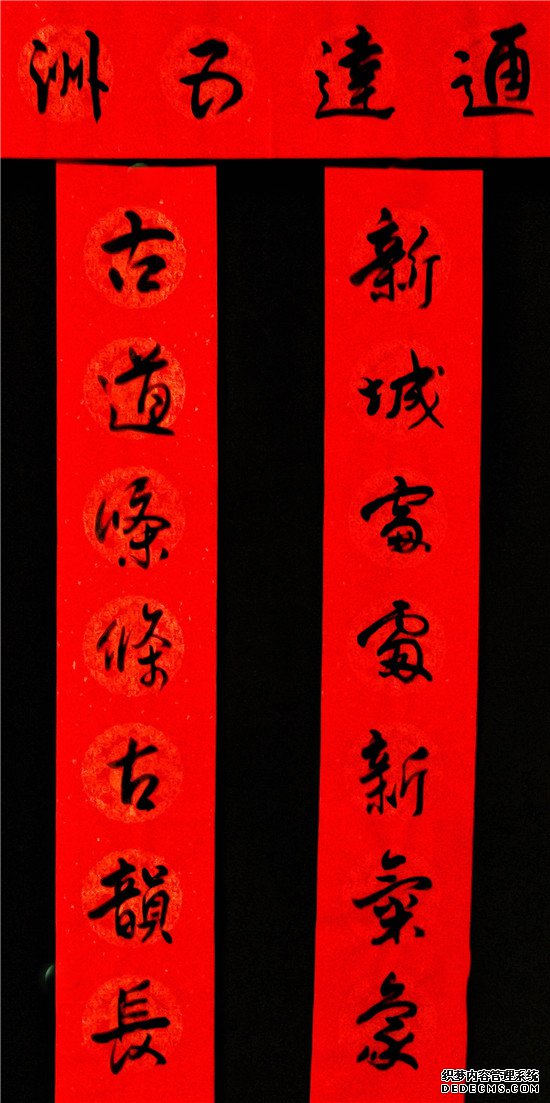 通達五洲
新城處處新氣象
古道條條古韻長
织梦内容管理系统
DEDECMS.COM